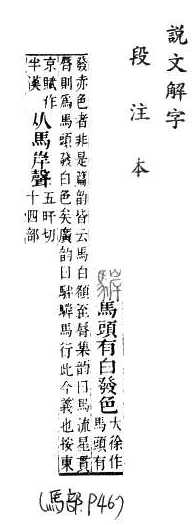 說文解字
段注本
馬頭有白發色 大徐作
馬頭有
發赤色者非是篇韵皆云馬白額至脣集韵曰馬流星貫
脣則爲馬頭發白色矣廣韵曰䮗馬行此今義也按東
京賦作
半漢
从馬岸聲 五旰切
十四部
(馬部 P46)